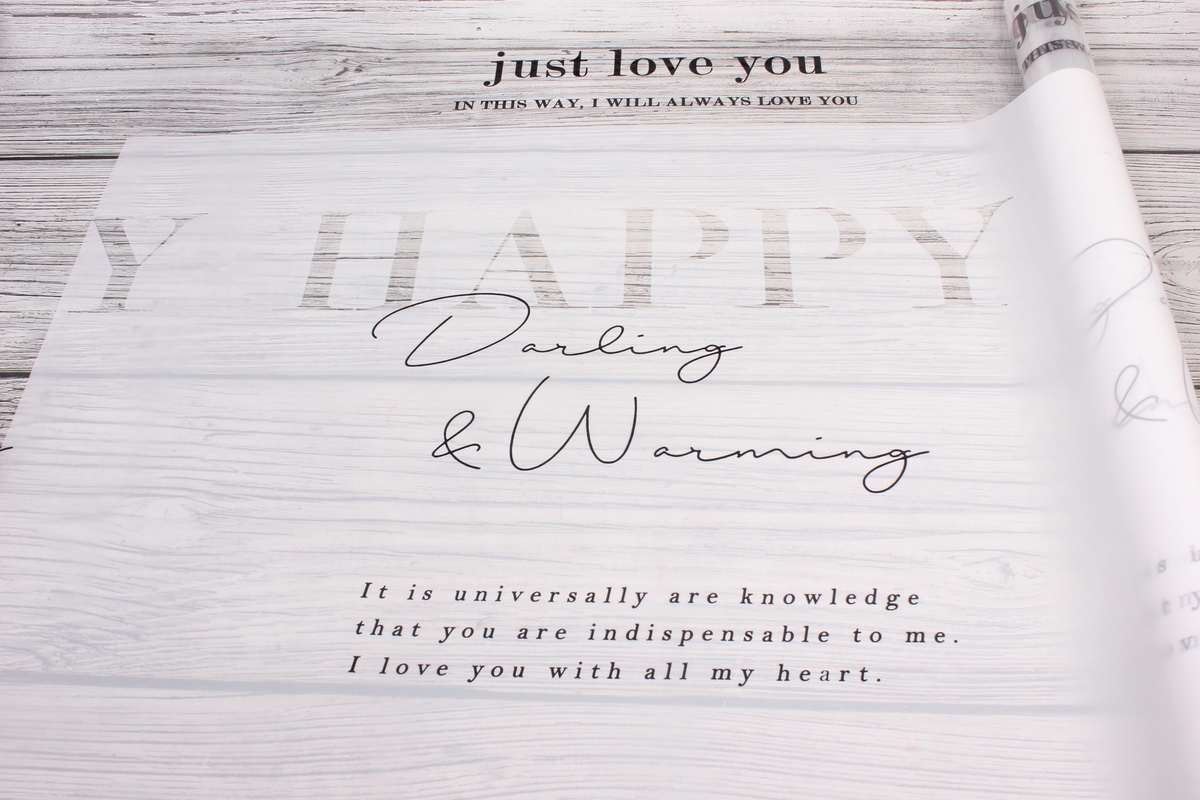 just love you
IN THIS WAY, I WILL ALWAYS LOVE YOU
Y HAPPY
Darling
& Warming
It is universally are knowledge
that you are indispensable to me.
I love you with all my heart.